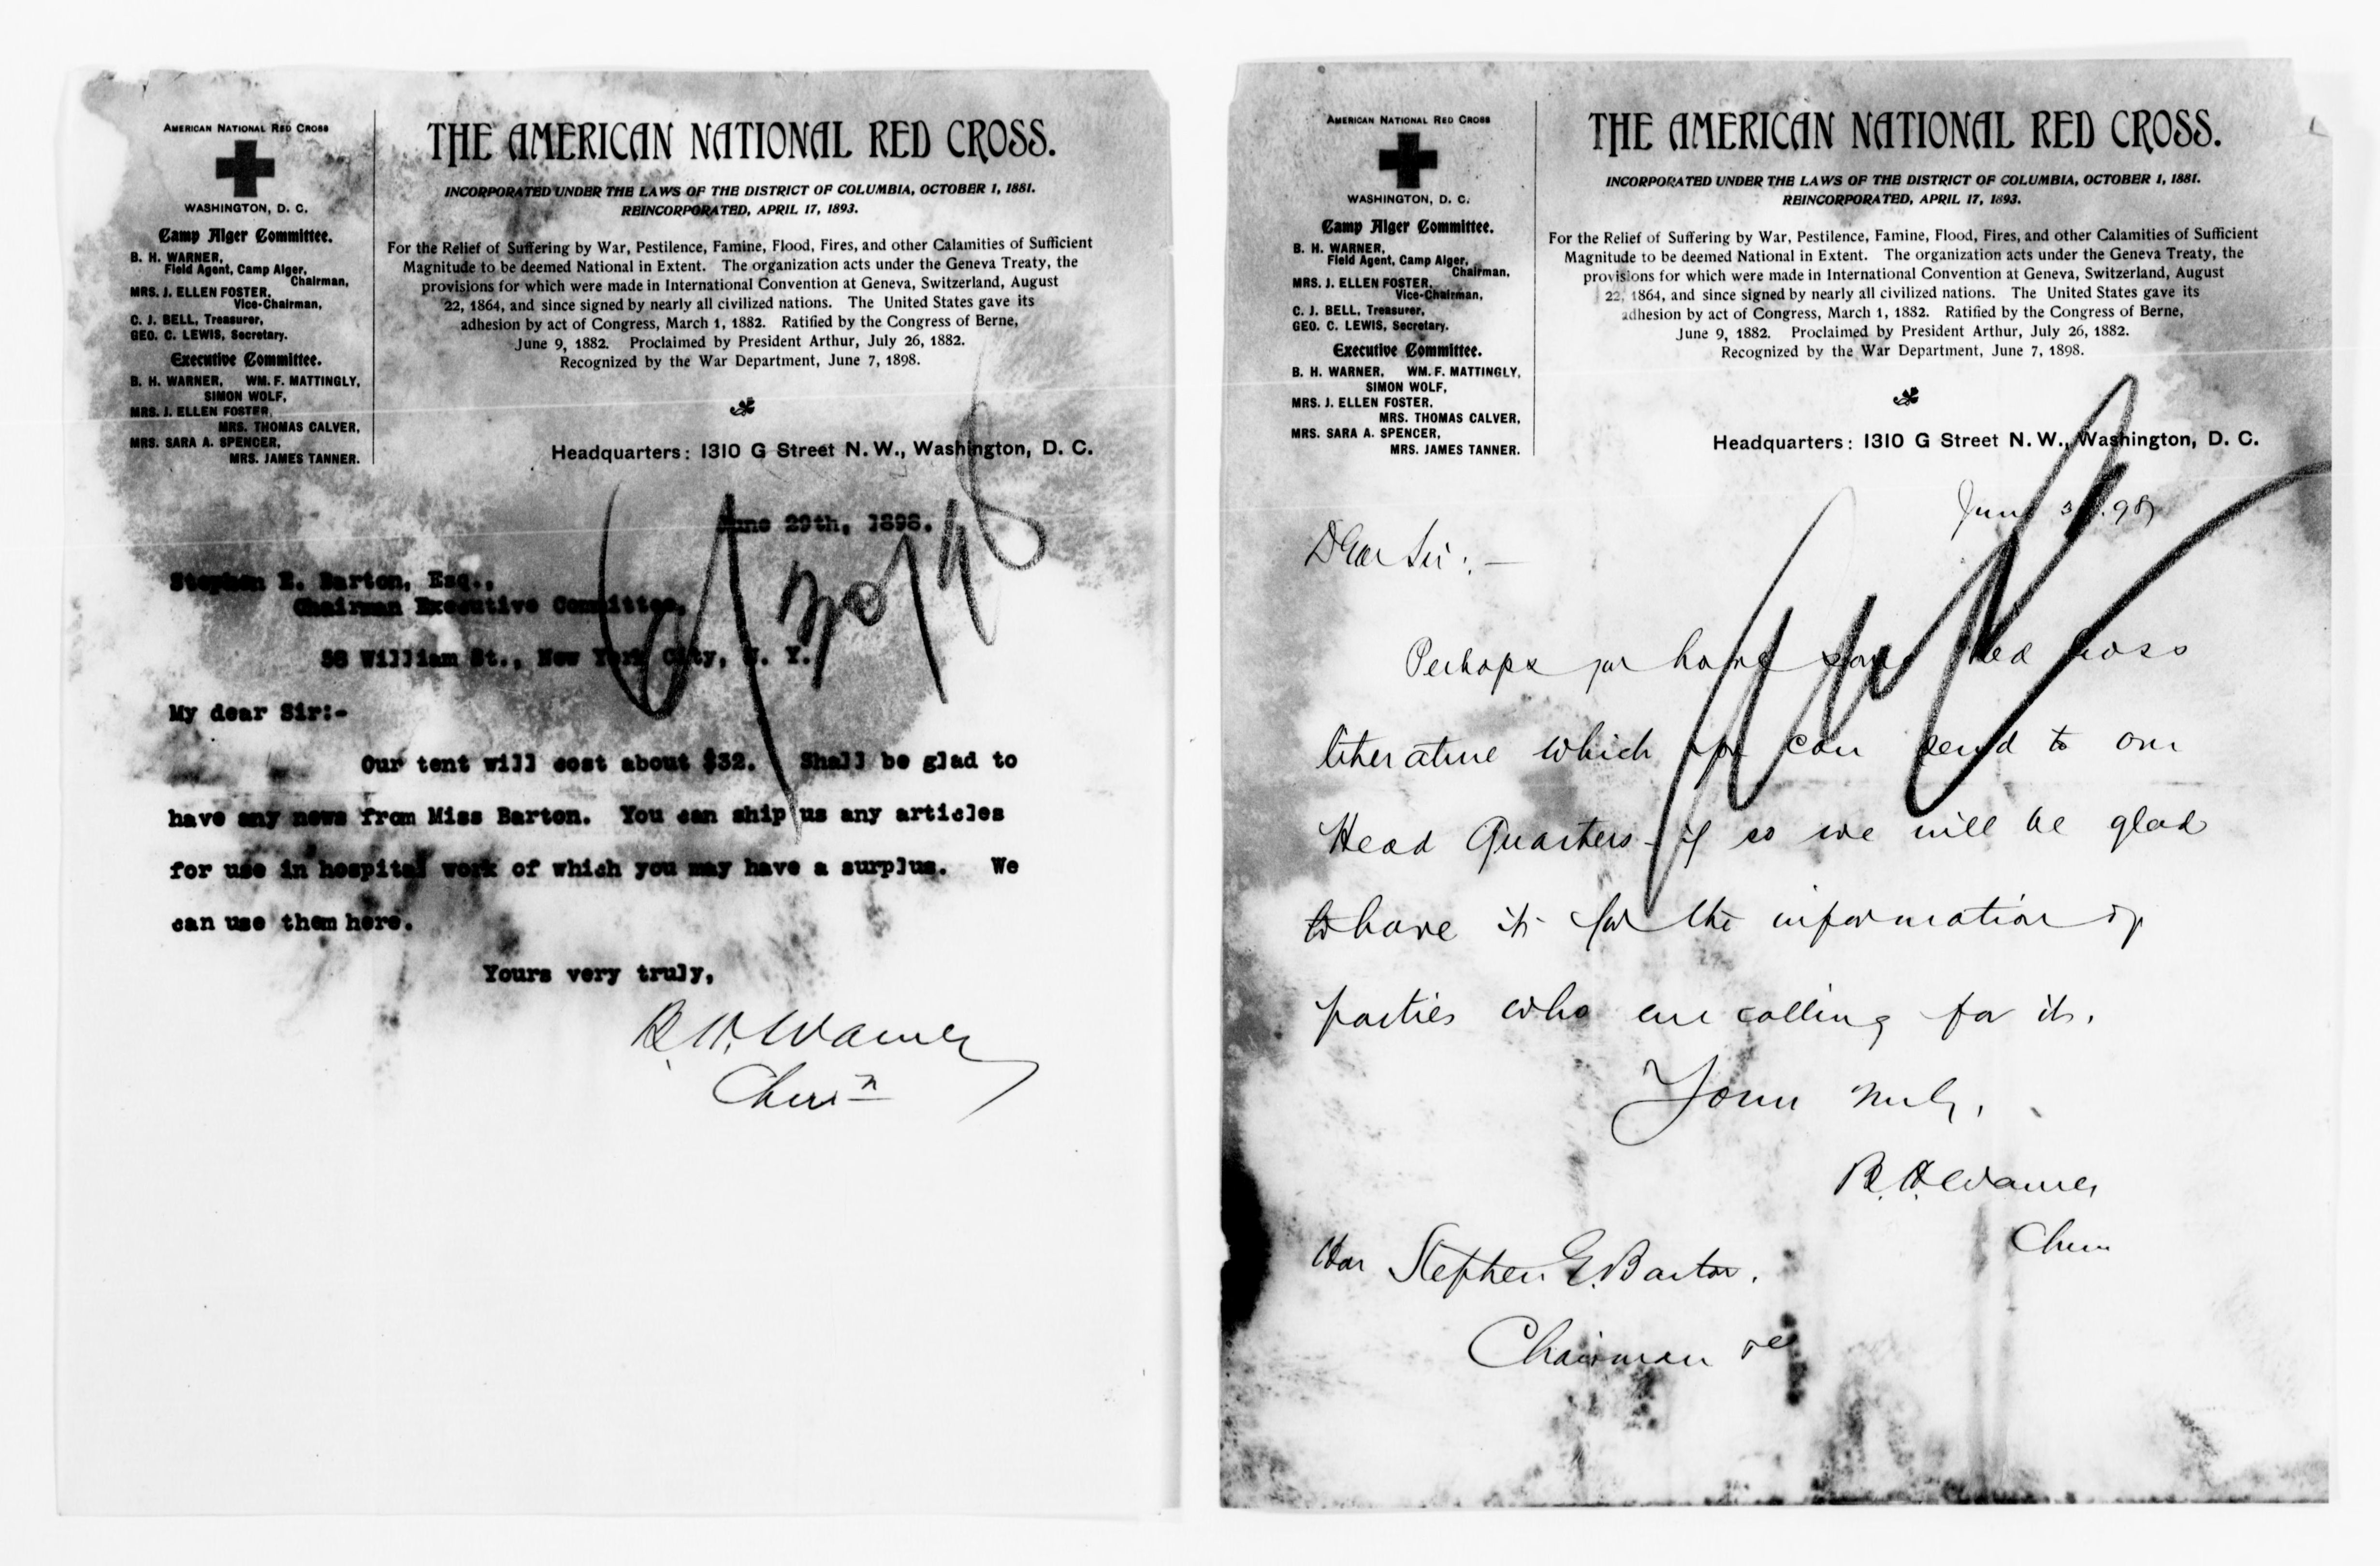 AMERICAN NATIONAL RED CROSS
WASHINGTON, D. C.
Camp Alger Committee.
B. H. WARNER,
Field Agent, Camp Alger,
Chairman,
MRS. J. ELLEN FOSTER,
Vice-Chairman,
C. J. BELL, Treasurer,
GEO. C. LEWIS, Secretary.
Executive Committee.
B. H. WARNER, WM. F. MATTINGLY,
SIMON WOLF,
MRS. J. ELLEN FOSTER,
MRS. THOMAS CALVER,
MRS. SARA A. SPENCER,
MRS. JAMES TANNER.
THE AMERICAN NATIONAL RED CROSS.
INCORPORATED UNDER THE LAWS OF THE DISTRICT OF COLUMBIA, OCTOBER 1, 1881.
REINCORPORATED, APRIL 17, 1893.
For the Relief of Suffering by War, Pestilence, Famine, Flood, Fires, and other Calamities of Sufficient
Magnitude to be deemed National in Extent. The organization acts under the Geneva Treaty, the
provisions for which were made in International Convention at Geneva, Switzerland, August
22, 1864, and since signed by nearly all civilized nations. The United States gave its
adhesion by act of Congress, March 1, 1882. Ratified by the Congress of Berne,
June 9, 1882. Proclaimed by President Arthur, July 26, 1882.
Recognized by the War Department, June 7, 1898.
Headquarters: 1310 G Street N. W., Washington, D. C.
June 29th, 1898.
6/30/98
Stephen E. Barton, Esq.,
Chairman Executive Committee,
58 William St., New York City, N. Y.
My dear Sir:-
Our tent will cost about $32. Shall be glad to
have any news from Miss Barton. You can ship us any articles
for use in hospital work of which you may have a surplus. We
can use them here.
Yours very truly,
B. H. Warner
Chairn
AMERICAN NATIONAL RED CROSS
WASHINGTON, D. C.
Camp Alger Committee.
B. H. WARNER,
Field Agent, Camp Alger,
Chairman,
MRS. J. ELLEN FOSTER,
Vice-Chairman,
C. J. BELL, Treasurer,
GEO. C. LEWIS, Secretary.
Executive Committee.
B. H. WARNER, WM. F. MATTINGLY,
SIMON WOLF,
MRS. J. ELLEN FOSTER,
MRS. THOMAS CALVER,
MRS. SARA A. SPENCER,
MRS. JAMES TANNER.
THE AMERICAN NATIONAL RED CROSS.
INCORPORATED UNDER THE LAWS OF THE DISTRICT OF COLUMBIA, OCTOBER 1, 1881.
REINCORPORATED, APRIL 17, 1893.
For the Relief of Suffering by War, Pestilence, Famine, Flood, Fires, and other Calamities of Sufficient
Magnitude to be deemed National in Extent. The organization acts under the Geneva Treaty, the
provisions for which were made in International Convention at Geneva, Switzerland, August
22, 1864, and since signed by nearly all civilized nations. The United States gave its
adhesion by act of Congress, March 1, 1882. Ratified by the Congress of Berne,
June 9, 1882. Proclaimed by President Arthur, July 26, 1882.
Recognized by the War Department, June 7, 1898.
Headquarters: 1310 G Street N. W., Washington, D. C.
June 98
Dear Sir:-
Perhaps you have some Red Cross
literature which you can send to our
Head Quarters - if so we will be glad
to have it for the information of
parties who are calling for it.
Yours truly,
B. H. Warner
Chrm
Hon Stephen E. Barton.
Chairman